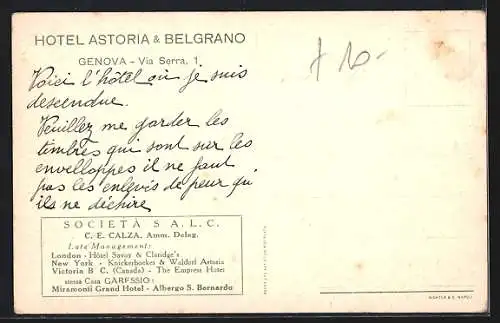 HOTEL ASTORIA & BELGRANO
GENOVA - Via Serra, 1
Voici l'hôtel où je suis
descendue.
Veuillez me garder les
timbres qui sont sur les
envelloppes il ne faut
pas les enlevés de peur qu'
ils ne déchire
SOCIETÀ S A. L. C.
C. E. CALZA, Amm. Deleg.
Late Management:
London - Hôtel Savoy & Claridge's
New York - Knickerbocker & Waldorf Astoria
Victoria B C. (Canada) - The Empress Hotel
stessa Casa GARESSIO:
Miramonti Grand Hotel - Albergo S. Bernardo